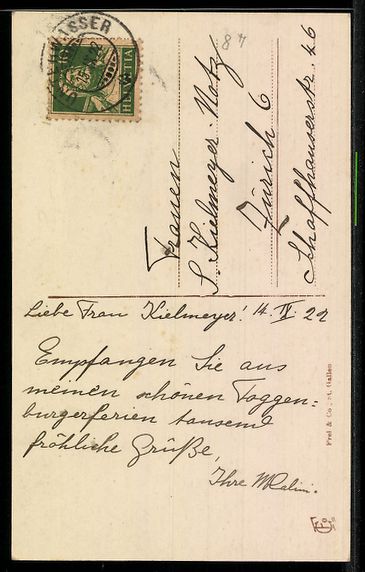 WASSER
HELVETIA
10
84
Frauen
S. Kielmeyer Notz
Zürich 6
Schaffhauserstr. 46
Liebe Frau Kielmeyer! 14. IX 22
Empfangen Sie aus
meinen schönen Toggen=
burgerferien tausend
fröhliche Grüße,
Ihre
Frei & Co., St. Gallen